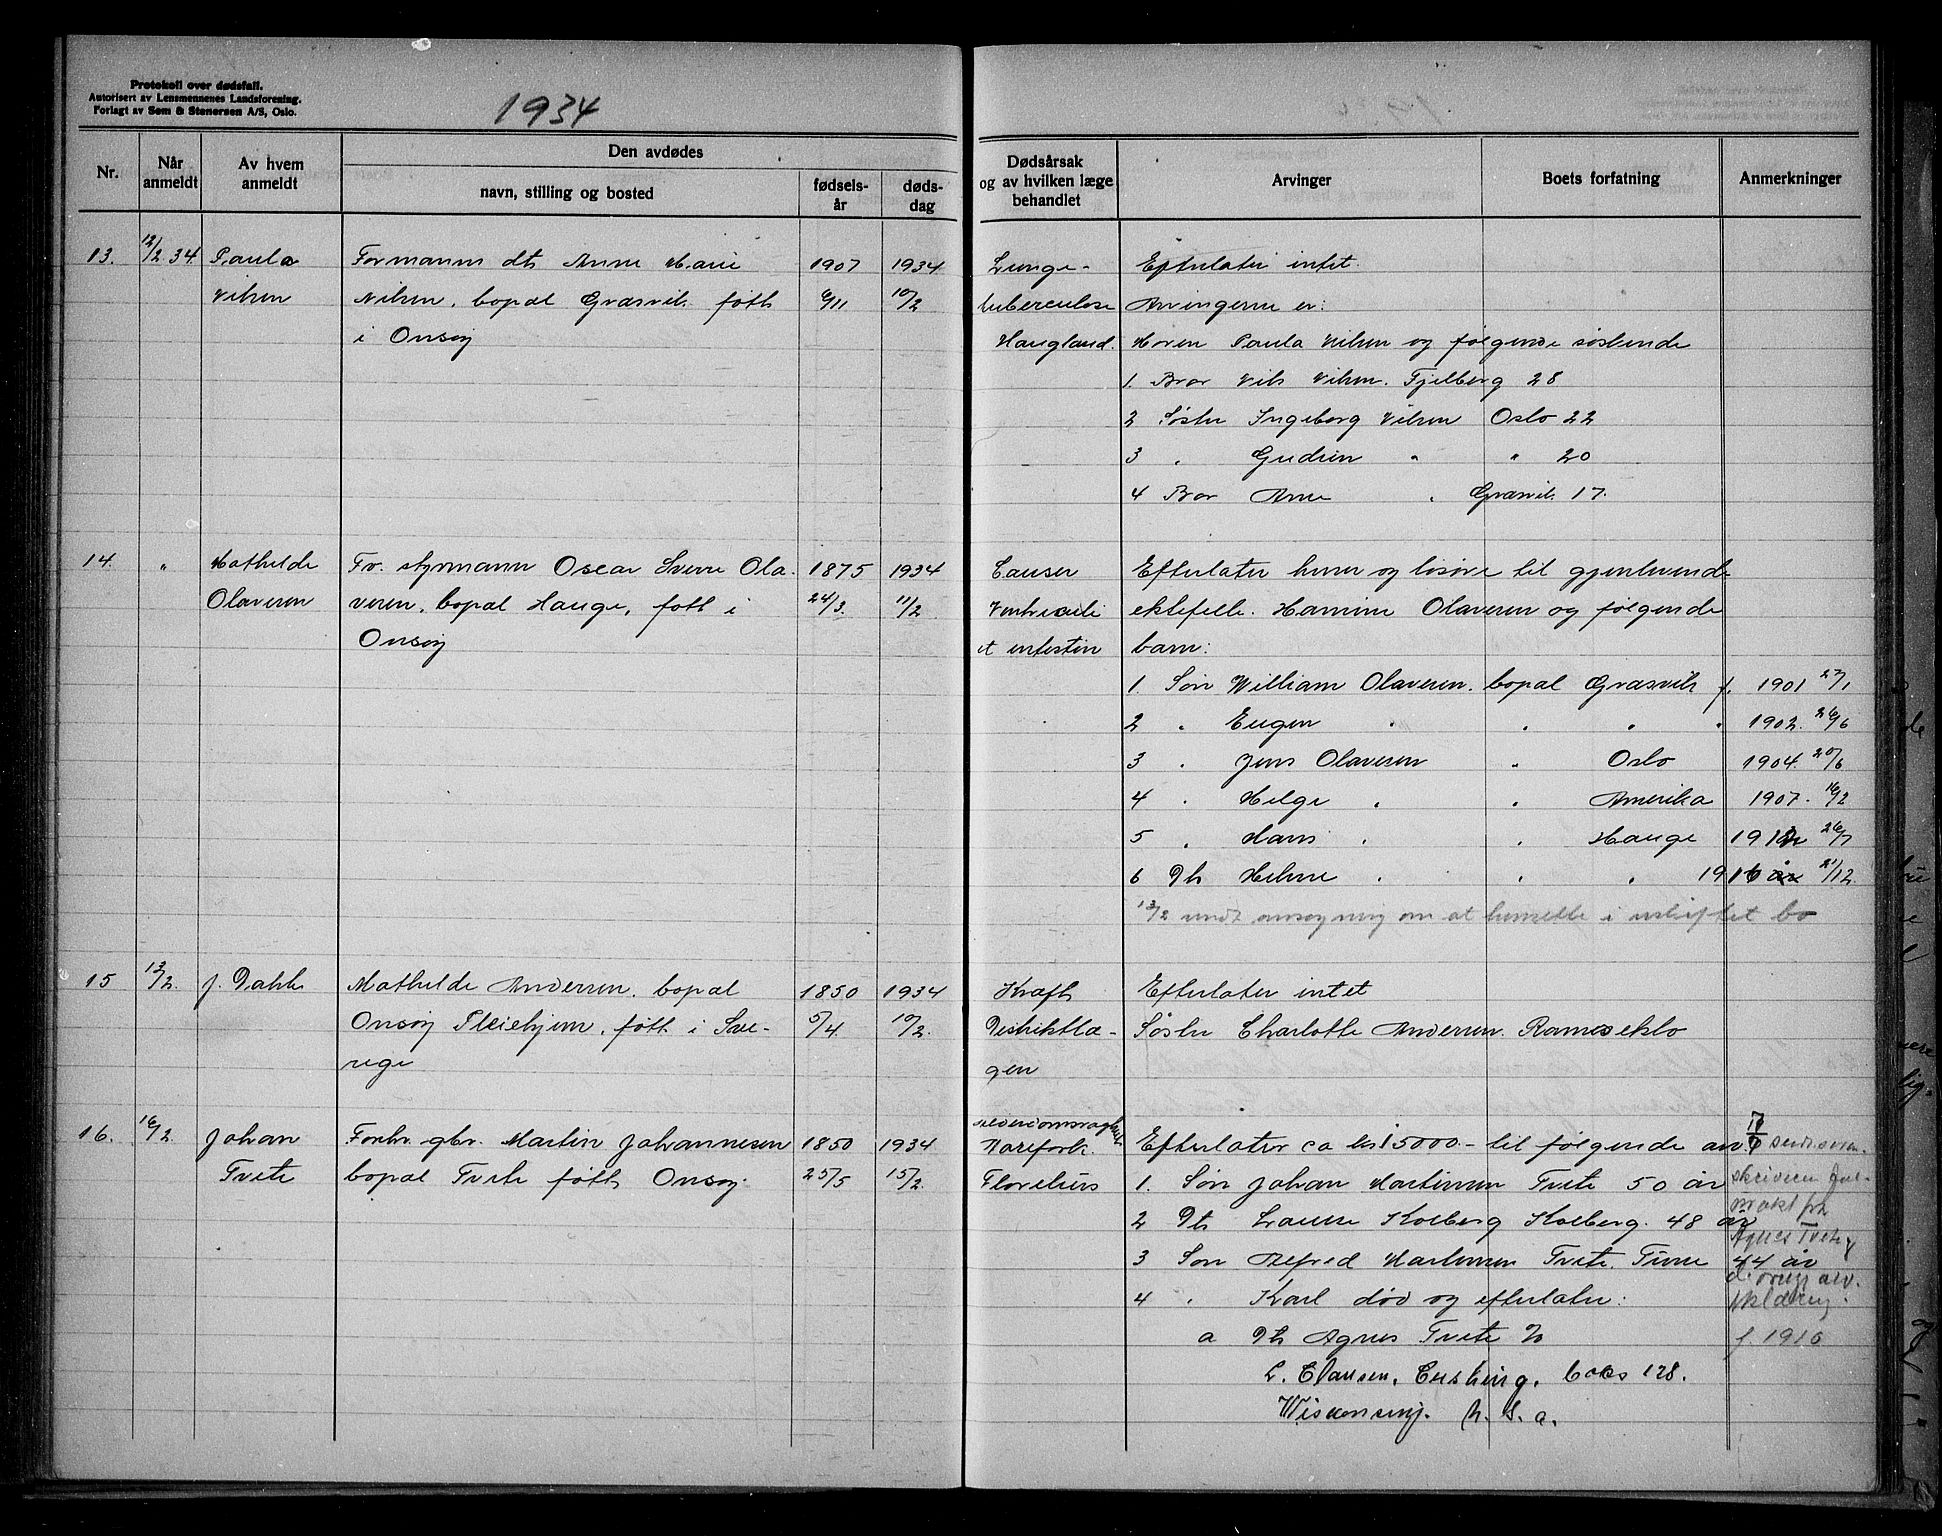 Protokoll over dødsfall.
Autorisert av Lensmennenes Landsforening.
Forlagt av Sem & Stenersen A/S, Oslo.
1934
Nr.
Når anmeldt
Av hvem anmeldt
Den avdødes
navn, stilling og bosted
fødsels-år
døds-dag
Dødsårsak og av hvilken læge behandlet
Arvinger
Boets forfatning
Anmerkninger
13. 12/2 34. Paula Formanns dtr Anne Marie 1907 1934 Lunge- Efterlater intet.
Nilsen Nilsen, bopal Græsvik, født 6/11 10/2 tuberculose Arvingerne er:
i Onsøy Haugland. Moren Paula Nilsen og følgende søskende
1. Bror Nils Nilsen. Fjelberg 28
2 Søster Ingeborg Nilsen Oslo 22
3 " Gudrun " " 20
4 Bror Arne " Græsvik 17.
14. " Mathilde Fv. styrmann Oscar Sverre Ola- 1875 1934 Cancer Efterlater huus og løsøre til gjenlevende
Olavesen vesen, bopal Hauge, født i 24/3. 11/2 Ventriculi ektefelle. Olavesen og følgende
Onsøy et intestin barn:
1. Søn William Olavesen. bopal Græsvik f. 1901 27/1
2 " Eugen " " " " 1902. 26/6
3 " Jens Olavesen " Oslo 1904. 20/6
4 " Helge " " Amerika 1907. 16/2
5 " Hans " " Hauge 1912 26/7
6 Dtr " " " 1916 år 21/12.
13/2 sendt ansøgning om at hensette i uskiftet bo
15 13/2. J. Dahle Mathilde Andersen, bopal 1850 1934 Kræft Efterlater intet
Onsøy Pleiehjem, født i Sve- 5/4 10/2. Distriktlæ- Søster Charlotte Andersen. Ramsesklo
rige gen
16. 16/2. Johan Forhv. gbr. Martin Johannesen 1850 1934 Efterlater ca kr 15000 - til følgende arv.
Tvete bopal Tvete født Onsøy. 25/5 15/2. Florelius 1. Søn Johan Martinsen Tvete 50 år
2 Dtr Kolberg Kolberg. 48 år
3 Søn Alfred Martinsen Tvete. Tune 44 år
4 " Karl død og efterlater:
a Dtr Agnes Tvete f. 1916
L. Clausen, Cushing, boks 128.
Wisconsing. U. S. a.
Agnes Tvete